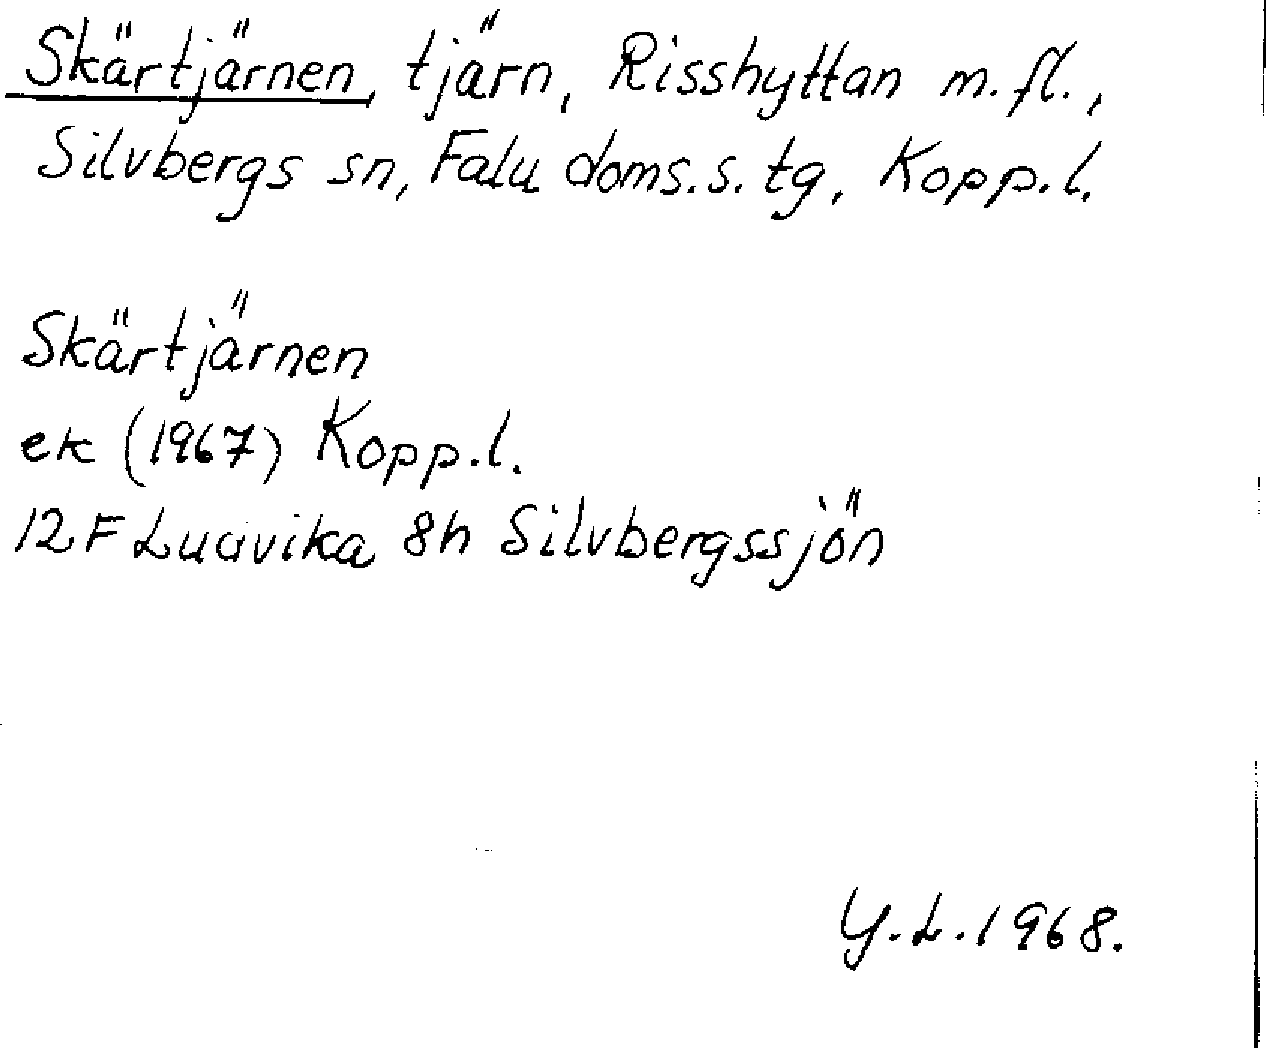 Skärtjärnen, tjärn, Risshyttan m.fl.,
Silvbergs sn, Falu doms.s. tg, Kopp.l.
Skärtjärnen
ek (1967) Kopp.l.
12F Ludvika 8h Silvbergssjön
Y.L.1968.